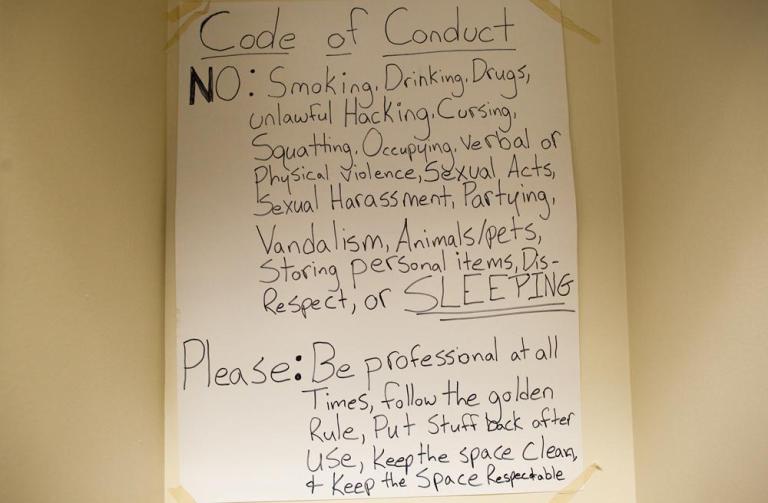 Code of Conduct
NO: Smoking, Drinking, Drugs,
unlawful Hacking, Cursing,
Squatting, Occupying, Verbal or
Physical Violence, Sexual Acts,
Sexual Harassment, Partying,
Vandalism, Animals/pets,
Storing personal items, Dis-
Respect, or SLEEPING
Please: Be professional at all
Times, follow the golden
Rule, Put Stuff back after
Use, Keep the space Clean,
& Keep the Space Respectable